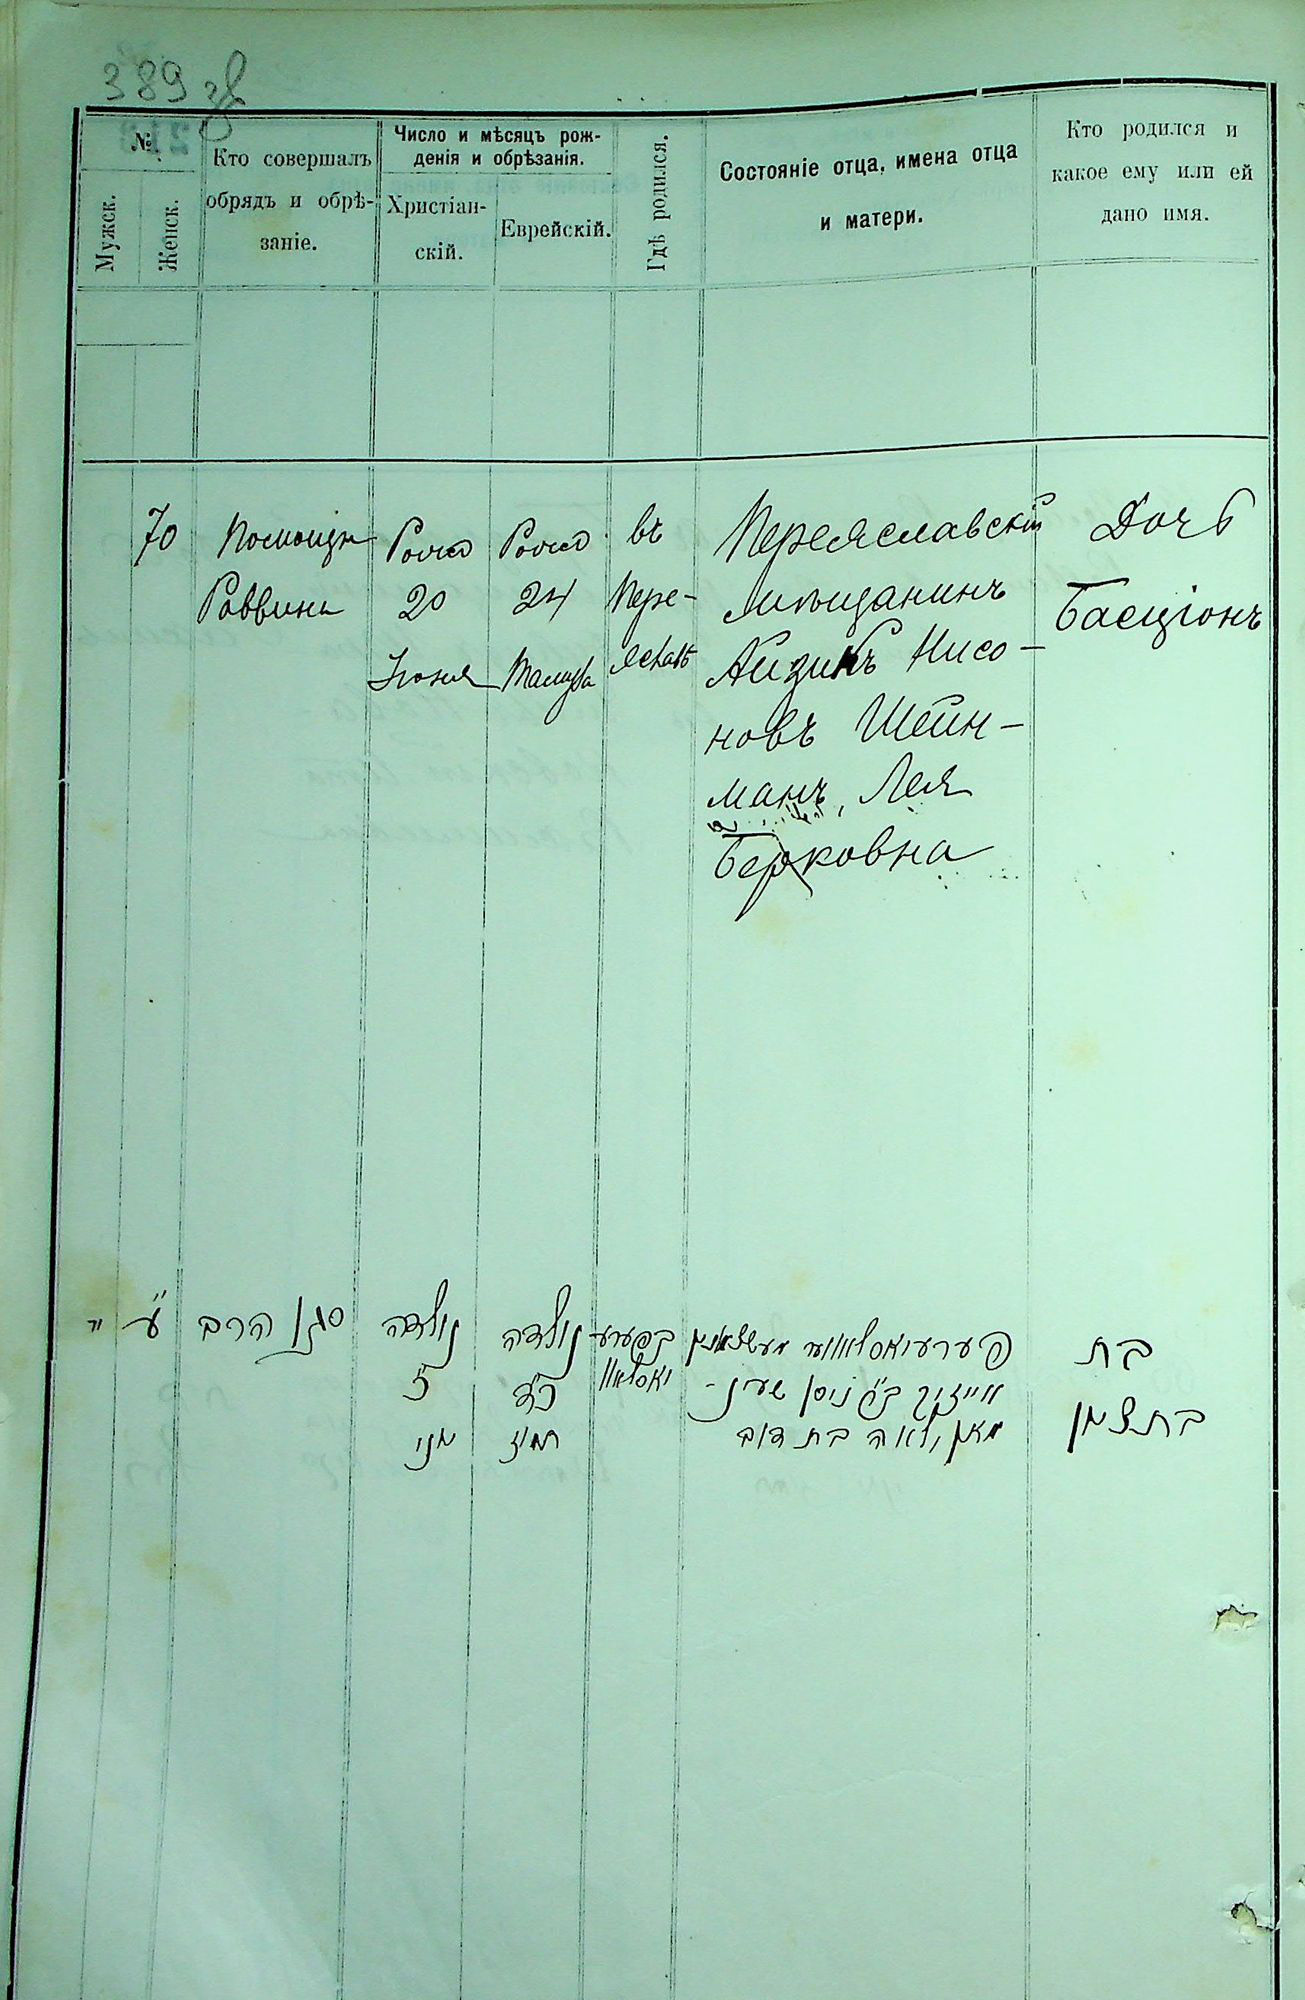 389 зв
№
Мужск.
Женск.
Кто совершалъ
обрядъ и обрѣ-
заніе.
Число и мѣсяцъ рож-
денія и обрѣзанія.
Христіан-
скій.
Еврейскій.
Гдѣ родился.
Состояніе отца, имена отца
и матери.
Кто родился и
какое ему или ей
дано имя.
70
Помощн
Раввина
20
Іюня
24
въ
Пере-
яславѣ
Переяславскій
мѣщанинъ
Айзикъ Нисо-
новъ Шейн-
манъ, Лея
Берковна
Дочь
Басціонъ
ע
סגן הרב
נולדה
כ
יוני
נולדה
כד
תמוז
בפערע
יאסלאוו
פערעיאסלאווער מעשצאנין
אייזיק ב"ר ניסן שיינ-
מאן, לאה בת דוב
בת
בת ציון